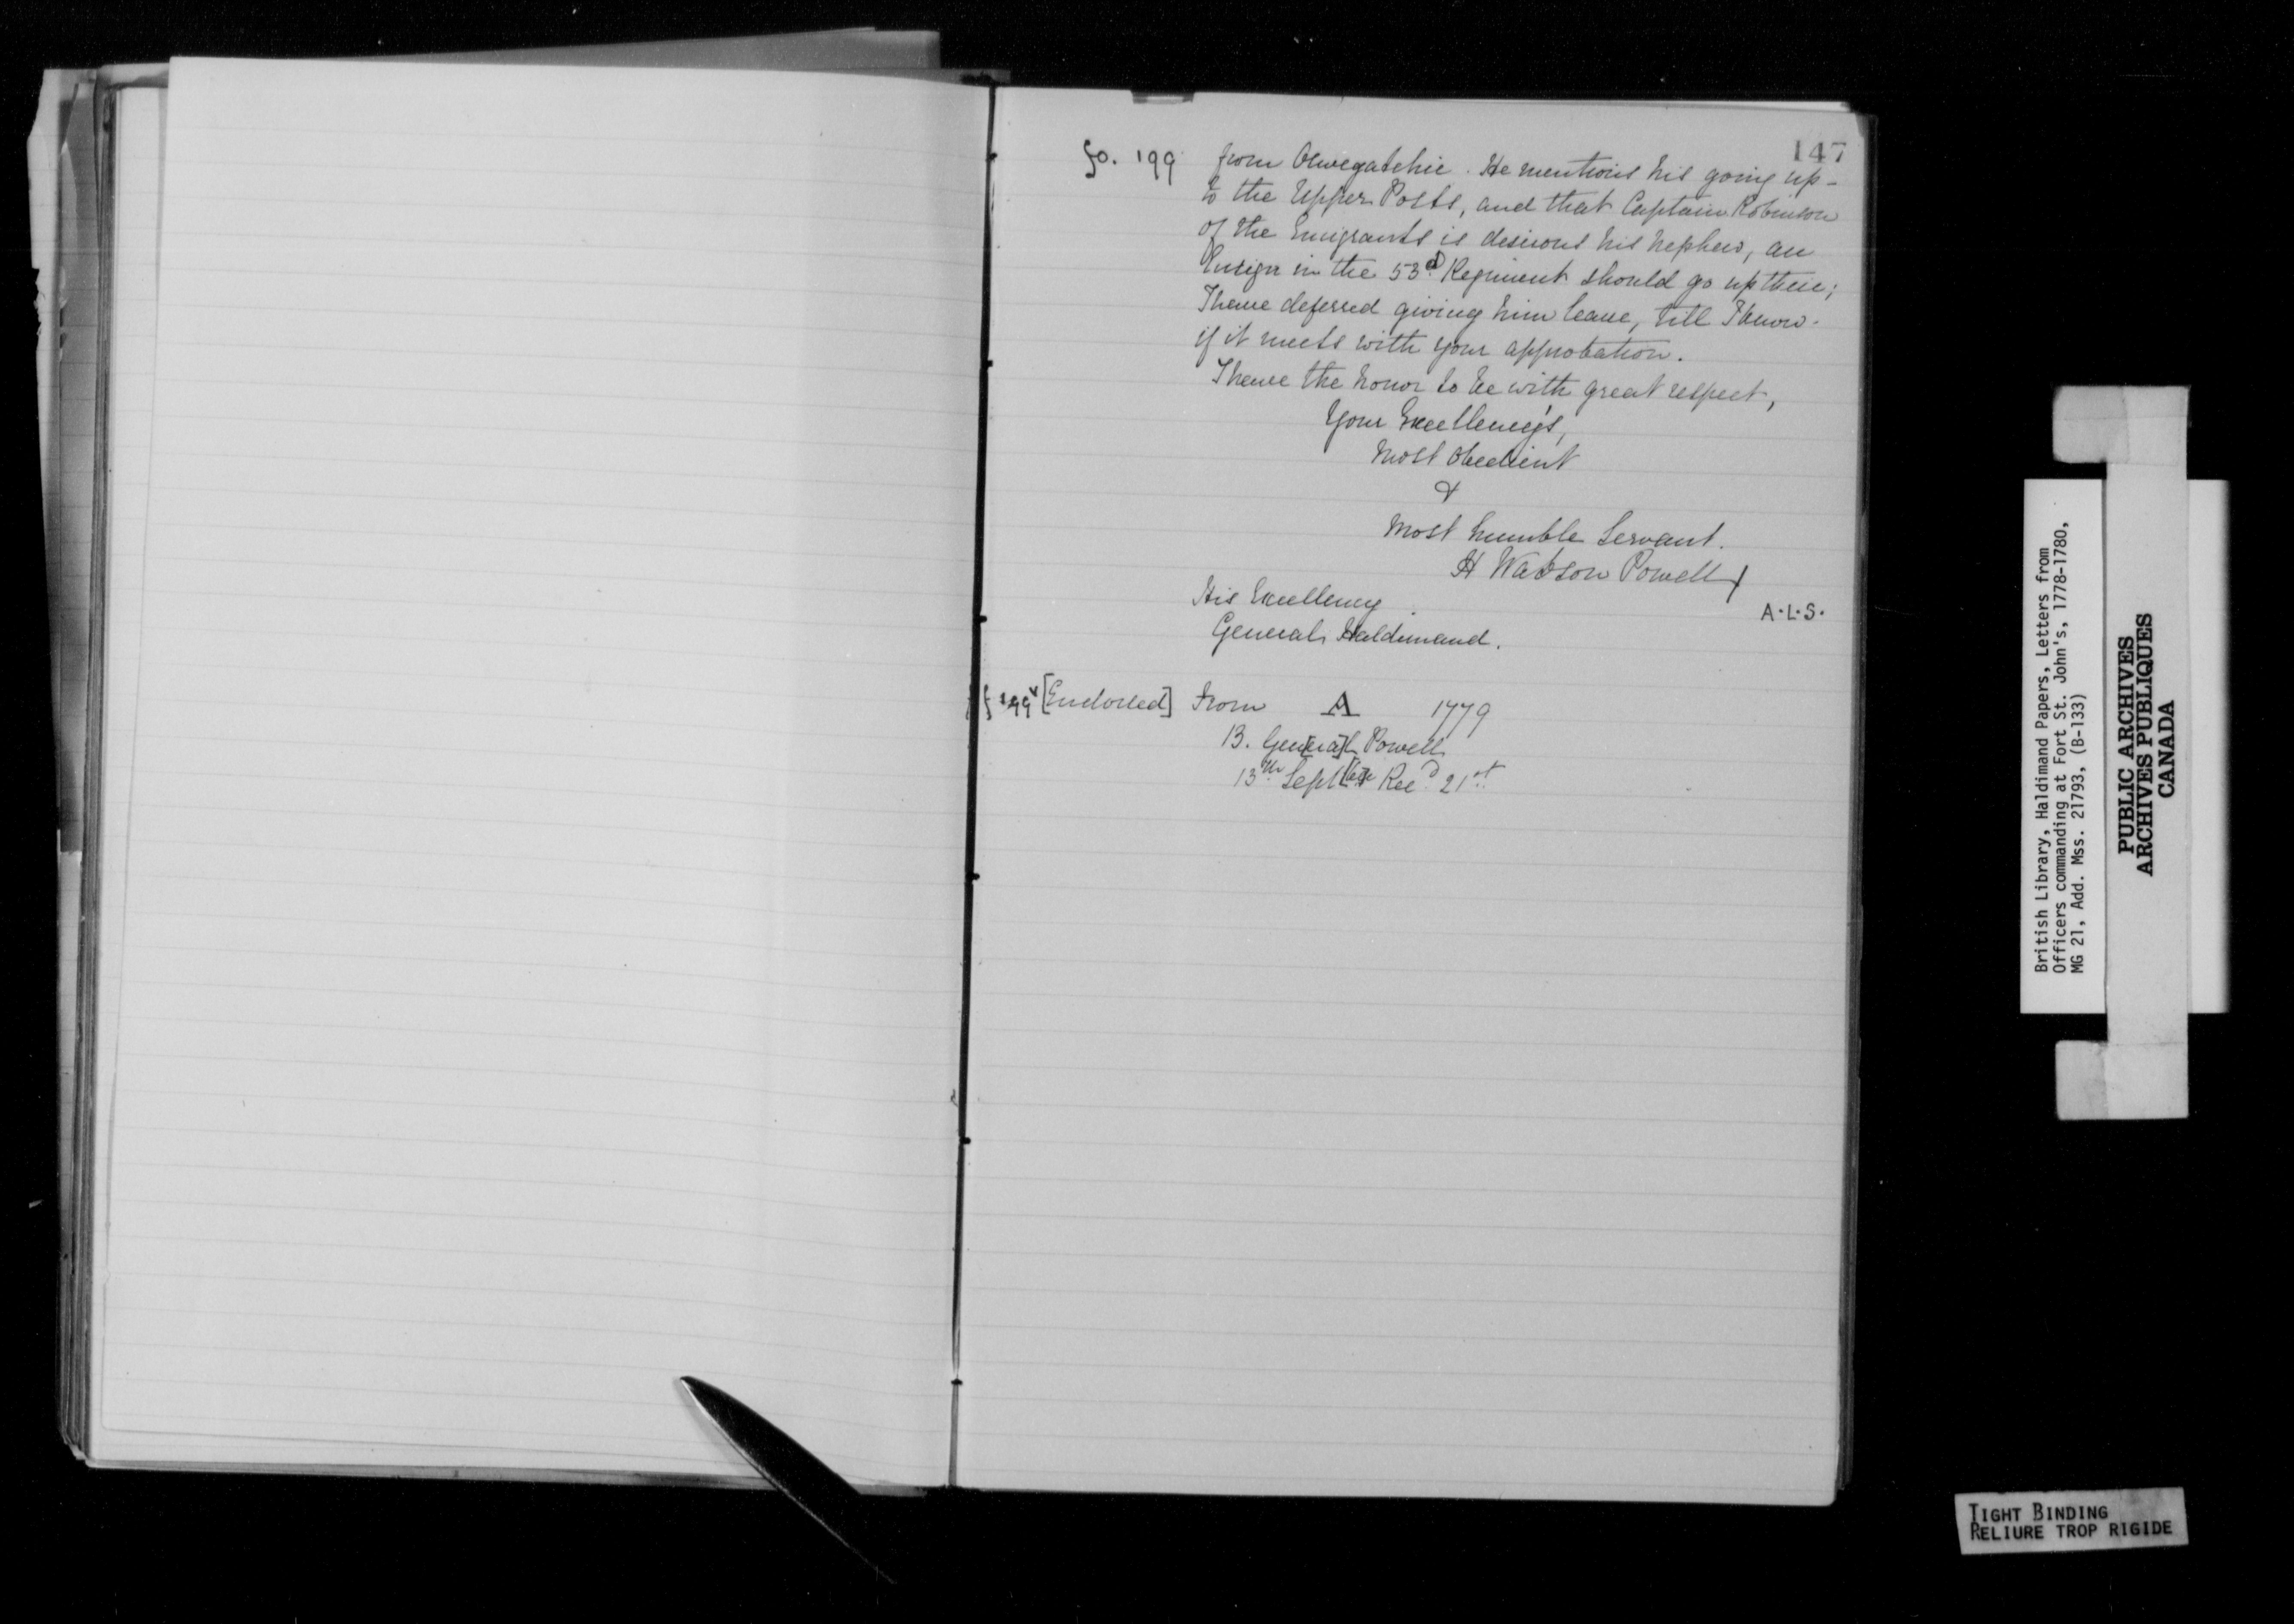 147
fo. 199 from Oswegatchie. He mentions his going up
to the Upper Posts, and that Captain Robinson
of the Emigrants is desirous his nephew, an
Ensign in the 53d Regiment should go up there;
I have deferred giving him leave, till I know
if it meets with your approbation.
I have the honor to be with great respect,
Your Excellency's,
Most Obedient
&
Most humble Servant.
H Watson Powell
A.L.S.
His Excellency
General Haldimand.
f 199v [Endorsed] From A 1779
B. Gen[era]l Powell
13th Sept[be]r Recd 21st
British Library, Haldimand Papers, Letters from
Officers commanding at Fort St. John's, 1778-1780,
MG 21, Add. Mss. 21793, (B-133)
PUBLIC ARCHIVES
ARCHIVES PUBLIQUES
CANADA
TIGHT BINDING
RELIURE TROP RIGIDE